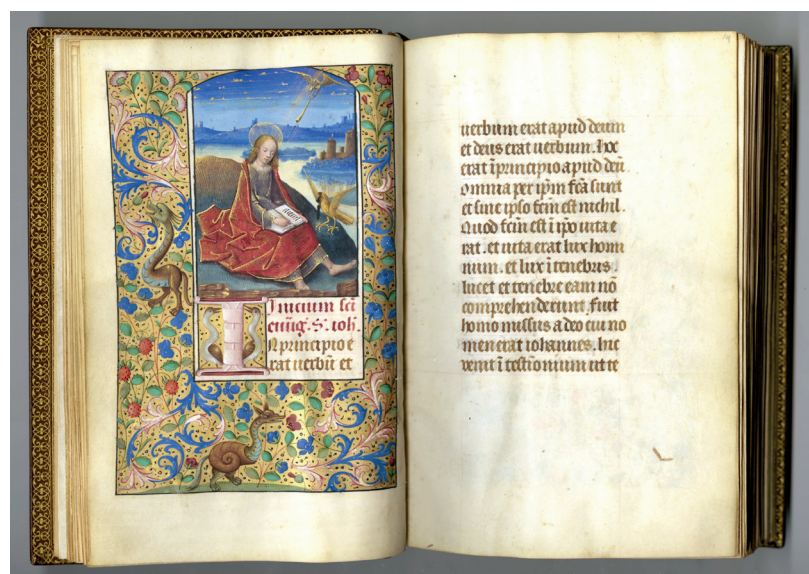 Inicium scī
euūg. S. ioh.
In principio e
rat uerbū et
uerbum erat apud deum
et deus erat uerbum. hoc
erat īprincipio apud deū.
Omnia per ipm̄ fcā sunt
et sine ipso fcm̄ est nichil.
Quod fcm̄ est ī ipō uita e
rat. et uita erat lux homi
num. et lux ī tenebris.
lucet et tenebre eam nō
comprehenderunt. Fuit
homo missus a deo cui no
men erat iohannes. hic
venit ī testionium ut te